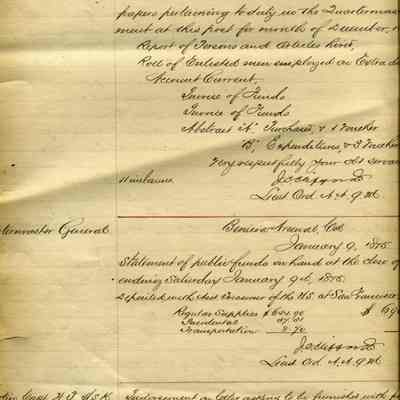 papers pertaining to duty in the Quartermas
ment at this post for month of December,
Report of Persons and articles hired,
Roll of Enlisted men employed on Extra d
Account Current,
Invoice of Funds
Invoice of Funds
Abstract "A", Purchases, & 1 Voucher
"B", Expenditures, & 3 Voucher
Very respectfully your Obt Servan
11 inclosures
Lieut Ord. A.A.Q.M.
General
Benicia Arsenal, Cal
January 9, 1875
Statement of public funds on hand at the close of
ending Saturday January 9th, 1875.
Deposited with Asst Treasurer of the U.S. at San Francisco
Regular Supplies
Incidental
Transportation
Lieut Ord. A.A.Q.M.
to be furnished with